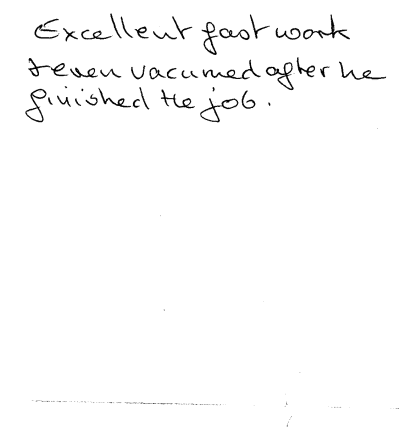 Excellent fast work
+ even vacumed after he
finished the job.